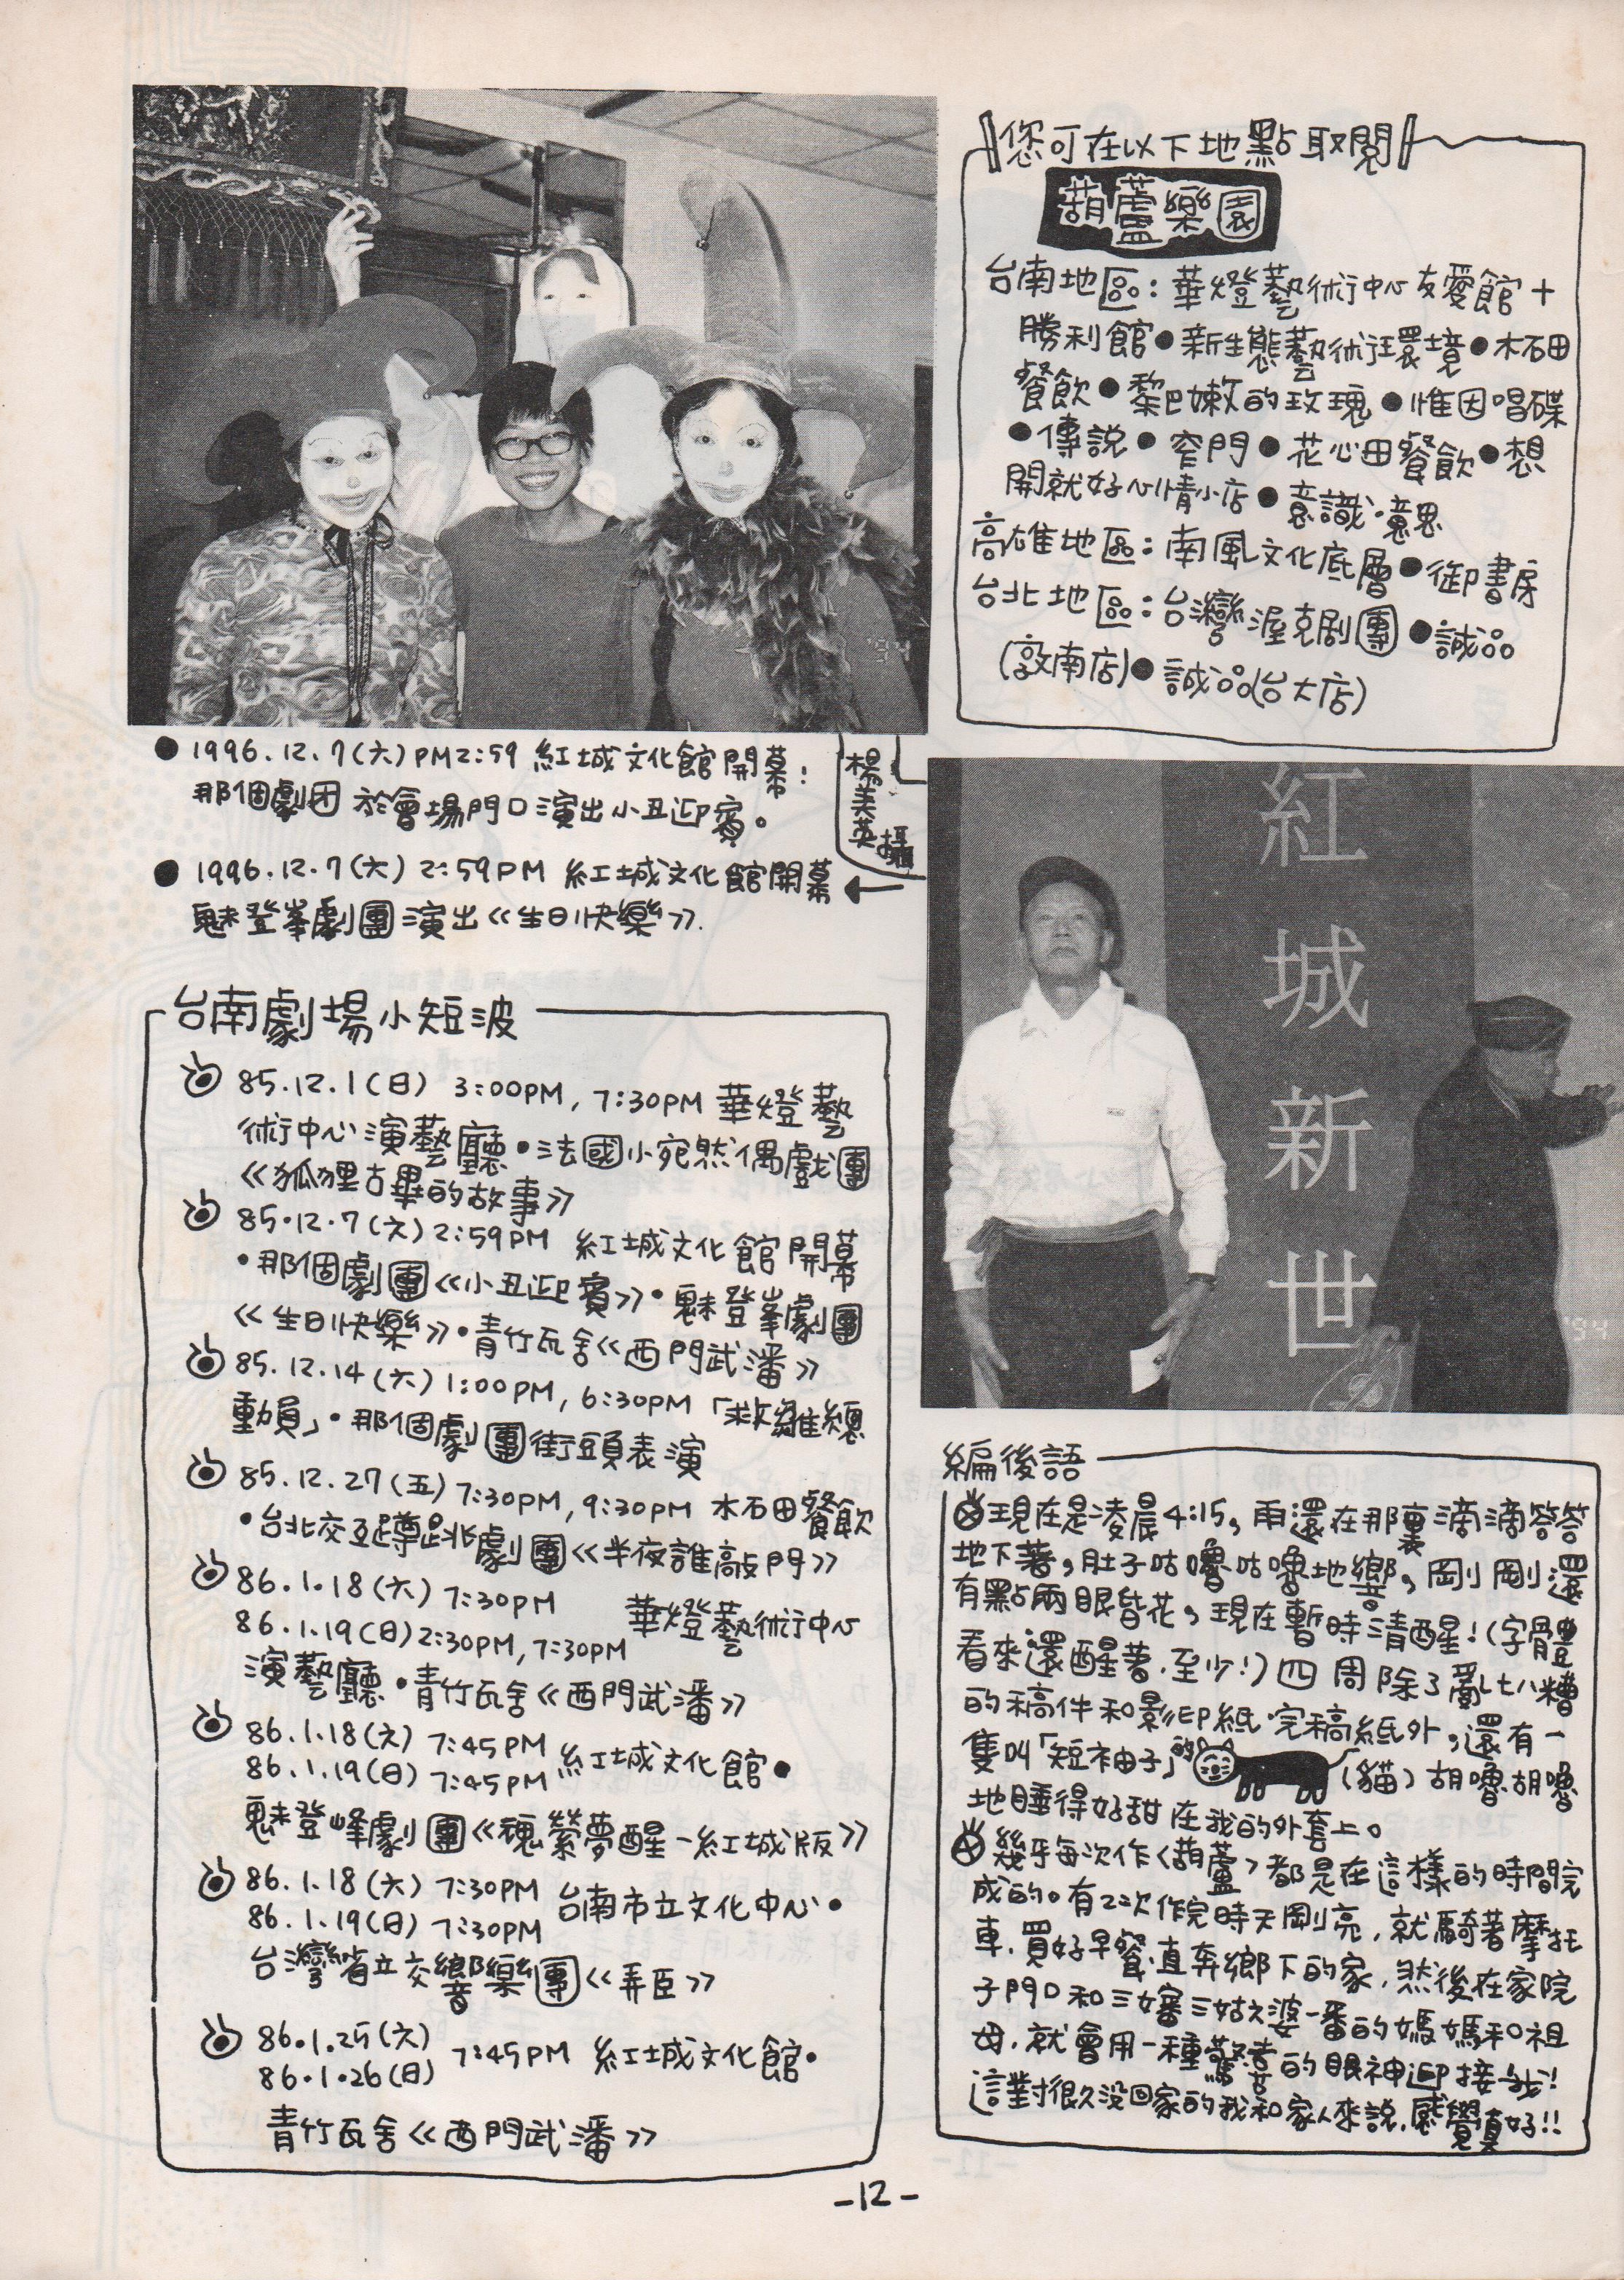 您可在以下地點取閱
葫蘆樂園
台南地區：華燈藝術中心友愛館＋
勝利館●新生態藝術環境●水石田
餐飲●黎巴嫩的玫瑰●惟因唱碟
●傳說●窄門●花心田餐飲●想
開就好心情小店●意識·意思
高雄地區：南風文化底層●御書房
台北地區：台灣渥克劇團●誠品
(敦南店)●誠品(台大店)
'94
●1996.12.7(六)PM2:59 紅城文化館開幕：
那個劇団於會場門口演出小丑迎賓。
楊美英攝
●1996.12.7(六) 2:59PM 紅城文化館開幕
魅登峯劇團演出《生日快樂》.
紅城新世
'94
台南劇場小短波
85.12.1(日) 3:00PM, 7:30PM 華燈藝
術中心演藝廳·法國小宛然偶戲團
《狐狸古畢的故事》
85.12.7(六)2:59PM 紅城文化館開幕
·那個劇團《小丑迎賓》·魅登峯劇團
《生日快樂》·青竹瓦舍《西門武潘》
85.12.14(六)1:00PM, 6:30PM「救雛總
動員」·那個劇團街頭表演
85.12.27(五)7:30PM, 9:30PM 水石田餐飲
·台北交互蹲跳劇團《半夜誰敲門》
86.1.18(六) 7:30PM
86.1.19(日)2:30PM, 7:30PM 華燈藝術中心
演藝廳·青竹瓦舍《西門武潘》
86.1.18(六) 7:45PM
86.1.19(日) 7:45PM 紅城文化館·
魅登峰劇團《魂縈夢醒－紅城版》
86.1.18(六) 7:30PM
86.1.19(日) 7:30PM 台南市立文化中心·
台灣省立交響樂團《弄臣》
86.1.25(六)
86.1.26(日) 7:45PM 紅城文化館·
青竹瓦舍《西門武潘》
編後語
現在是凌晨4:15，雨還在那裏滴滴答答
地下著，肚子咕嚕咕嚕地響，剛剛還
有點兩眼皆花，現在暫時清醒！(字體
看來還醒著．至少！)四周除了亂七八糟
的稿件和影印紙·完稿紙外，還有一
隻叫「短袖子」的(貓)胡嚕胡嚕
地睡得好甜在我的外套上。
幾乎每次作〈葫蘆〉都是在這樣的時間完
成的。有2次作完時天剛亮，就騎著摩托
車．買好早餐．直奔鄉下的家．然後在家院
子門口和三嬸三姑六婆一番的媽媽和祖
母．就會用一種驚喜的眼神迎接我！
這對很久没回家的我和家人來說．感覺真好!!
-12-